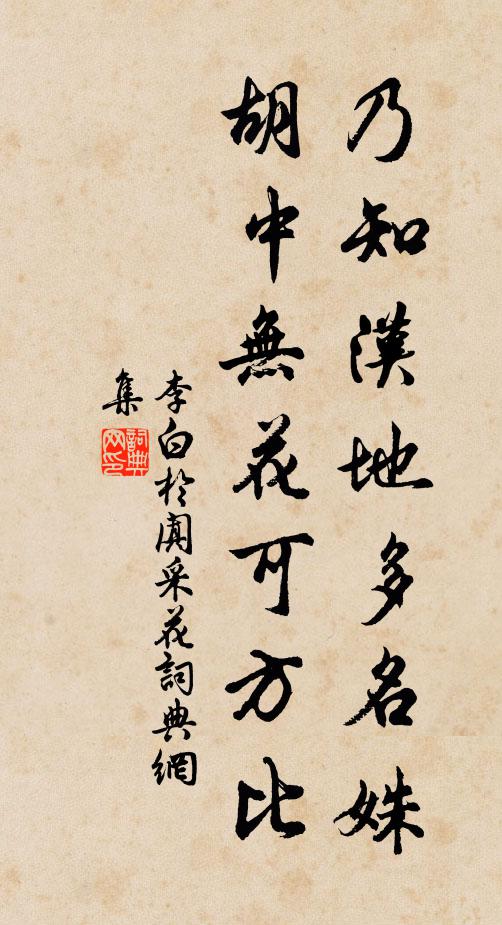 乃知漢地多名姝
胡中無花可方比
李白於闐采花詞典網
集
詞典網印